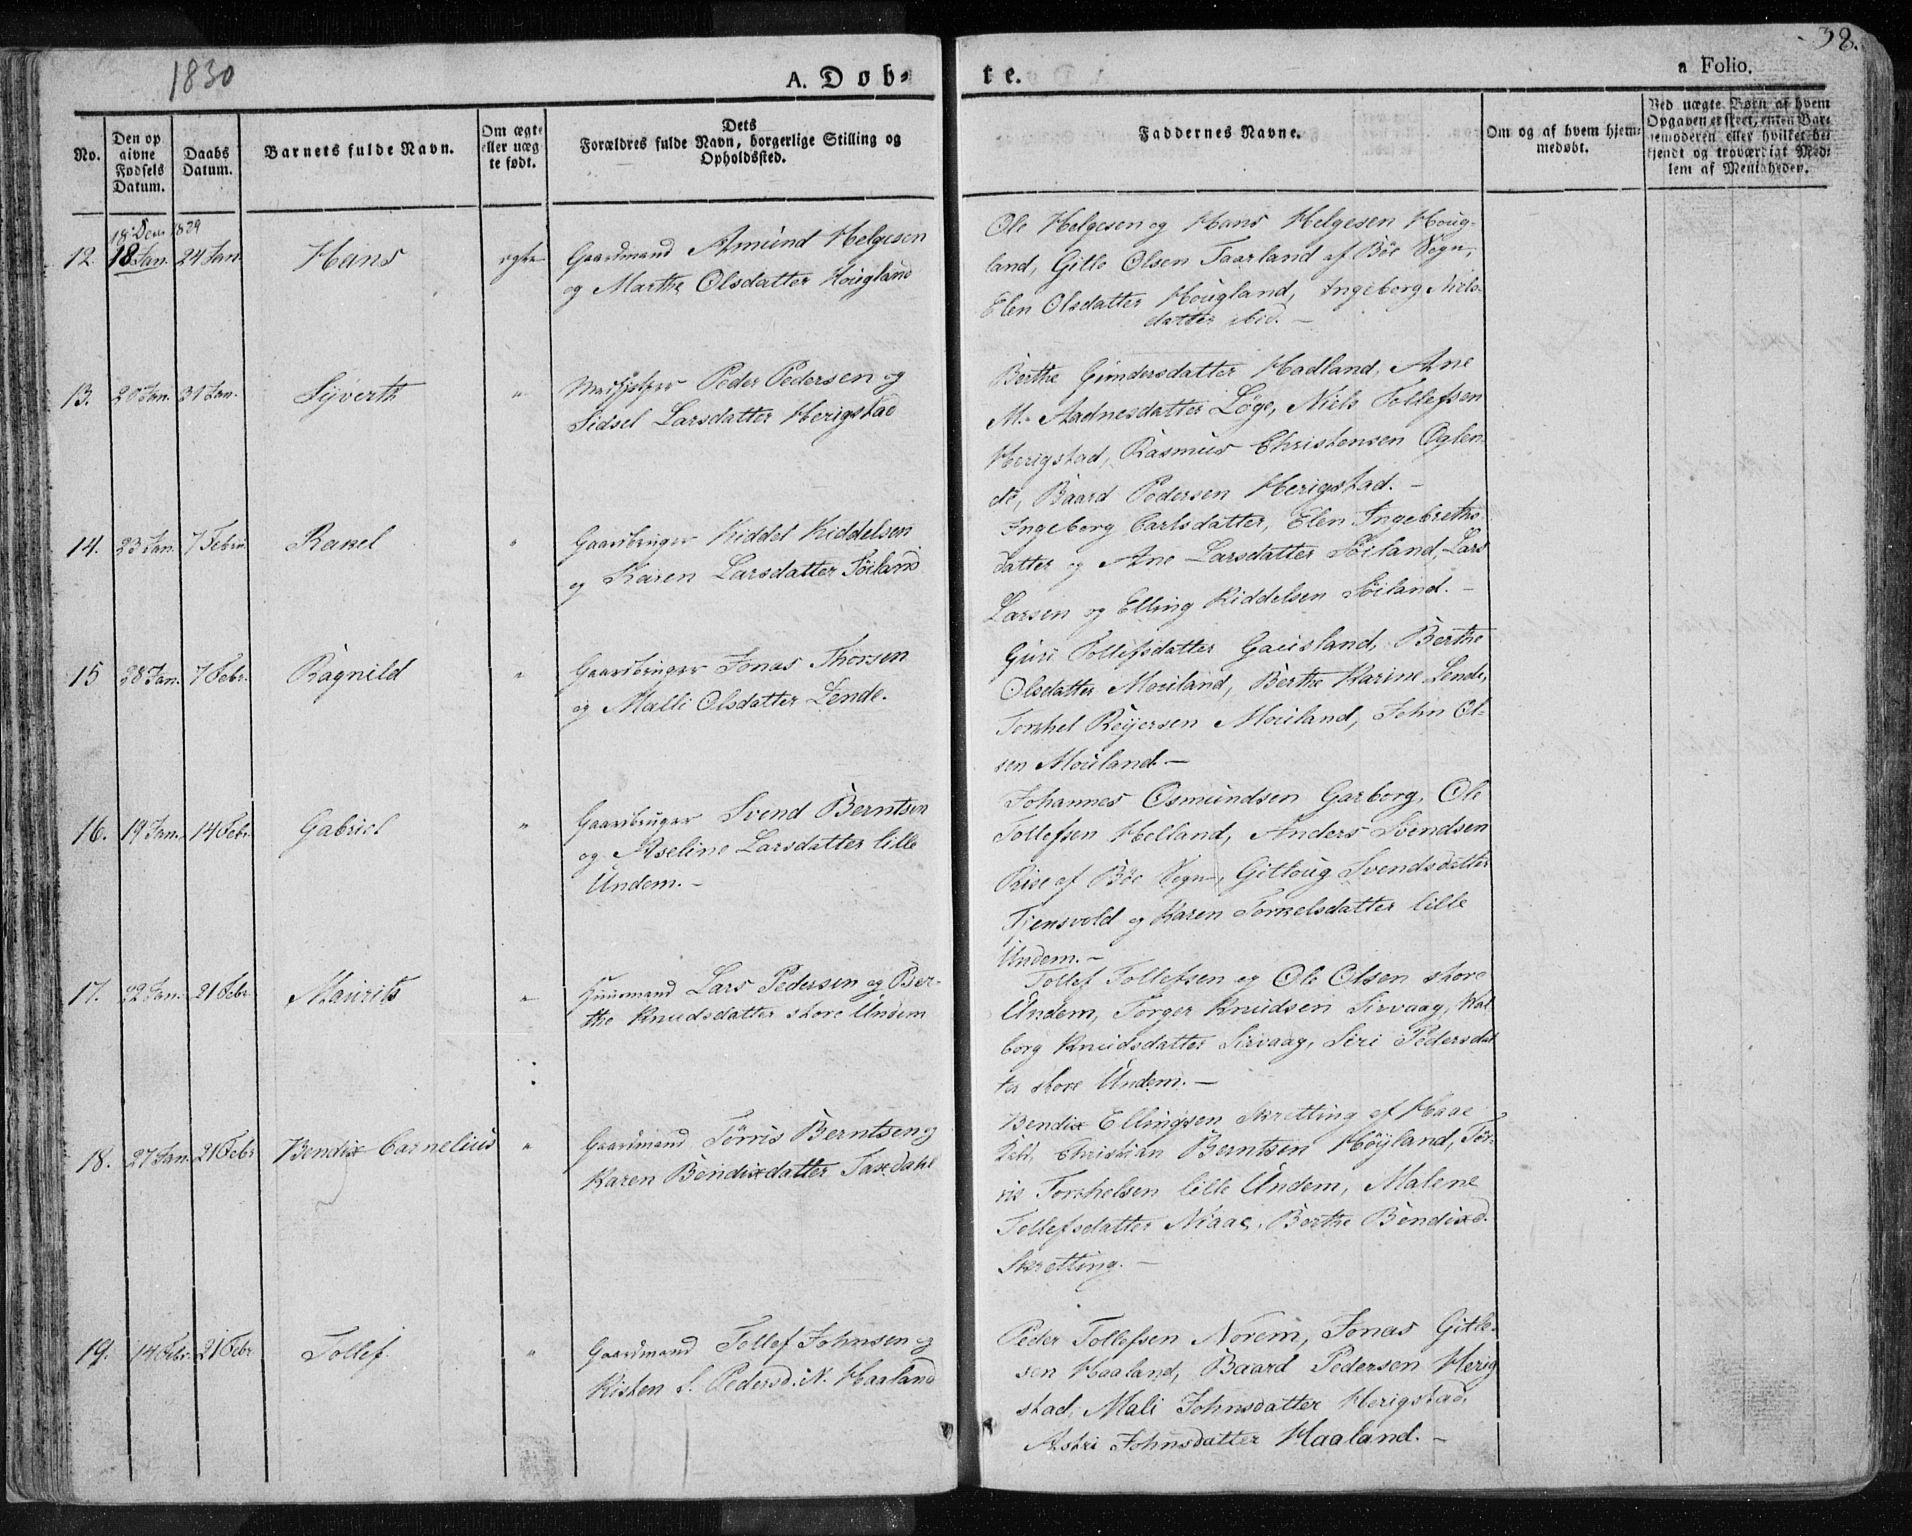 1830
38.
A. Døb-
te.
a Folio.
No.
Den op
givne
Fødsels
Datum.
Daabs
Datum.
Barnets fulde Navn.
Om ægte
eller uæg
te født.
Dets
Forældres fulde Navn, borgerlige Stilling og
Opholdssted.
Faddernes Navne.
Om og af hvem hjem-
medøbt.
Ved uægte Børn af hvem
Opgaven er skeet, enten Bar-
nemoderen eller hvilket be-
kjendt og troværdigt Med-
lem af Menigheden.
18 Dec 1829
12. 18 Jan. 24 Jan. Hans ægte Gaardmand Amund Helgesen
og Marthe Olsdatter Hougland
Ole Helgesen og Hans Helgesen Houg-
land, Gitle Olsen Taarland af Böe Sogn,
Elen Olsdatter Hougland, Ingeborg Niels-
datter ibid. —
13. 20 Jan. 31 Jan. Syverth " Peder Pedersen og
Sidsel Larsdatter Herigstad
Berthe Gundersdatter Hadland, Ane
M. Aadnesdatter Löge, Niels Tollefsen
Herigstad, Rasmus Christensen Oglen-
de, Baard Pedersen Herigstad. —
14. 23 Jan. 7 Febru Rakel " Gaardbruger Kiddel Kiddelsen
og Karen Larsdatter Söiland
Ingeborg Carlsdatter, Elen Ingebreths-
datter og Ane Larsdatter Söiland, Lars
Larsen og Elling Kiddelsen Söiland. —
15 28 Jan. 7 Febr. Ragnild " Gaardbruger Jonas Thorsen
og Malli Olsdatter Lende.
Guri Tollefsdatter Gausland, Berthe
Olsdatter Mouland, Berthe Karine Lende,
Torkhel Reyersen Mouland, John Ol-
sen Mouland —
16. 19 Jan. 14 Febr. Gabriel " Gaardbruger Svend Berntsen
og Aseline Larsdatter lille
Undem. —
Johannes Osmundsen Garborg, Ole
Tollefsen Helland, Anders Svendsen
Riise af Böe Sogn, Gitloug Svendsdatter
Tjensvold og Karen Torkelsdatter lille
Undem. —
17. 22 Jan. 21 Febr Maurits " Huusmand Lars Pedersen og Ber-
the Knudsdatter store Undem
Tollef Tollefsen og Ole Olsen store
Undem, Torger Knudsen Sirvaag, Wal-
borg Knudsdatter Sirvaag, Siri Pedersdat
ter store Undem. —
18. 27 Jan. 21 Febr Bendix Cornelius " Gaardmand Törris Berntsen og
Karen Bendixdatter Taxdahl
Bendix Ellingsen Skretting af Haae
Christian Berntsen Höyland, Tör-
ris Torkhelsen lille Undem, Malene
Tollefsdatter Niaae, Berthe Bendixd.
Skretting. —
19. 14 Febr. 21 Febr Tollef " Gaardmand Tollef Johnsen og
Kisten S. Pedersd. N. Haaland
Peder Tollefsen Norem, Jonas Gitle-
sen Haaland, Baard Pedersen Herig
stad, Mali Johnsdatter Herigstad,
Astri Johnsdatter Haaland. —